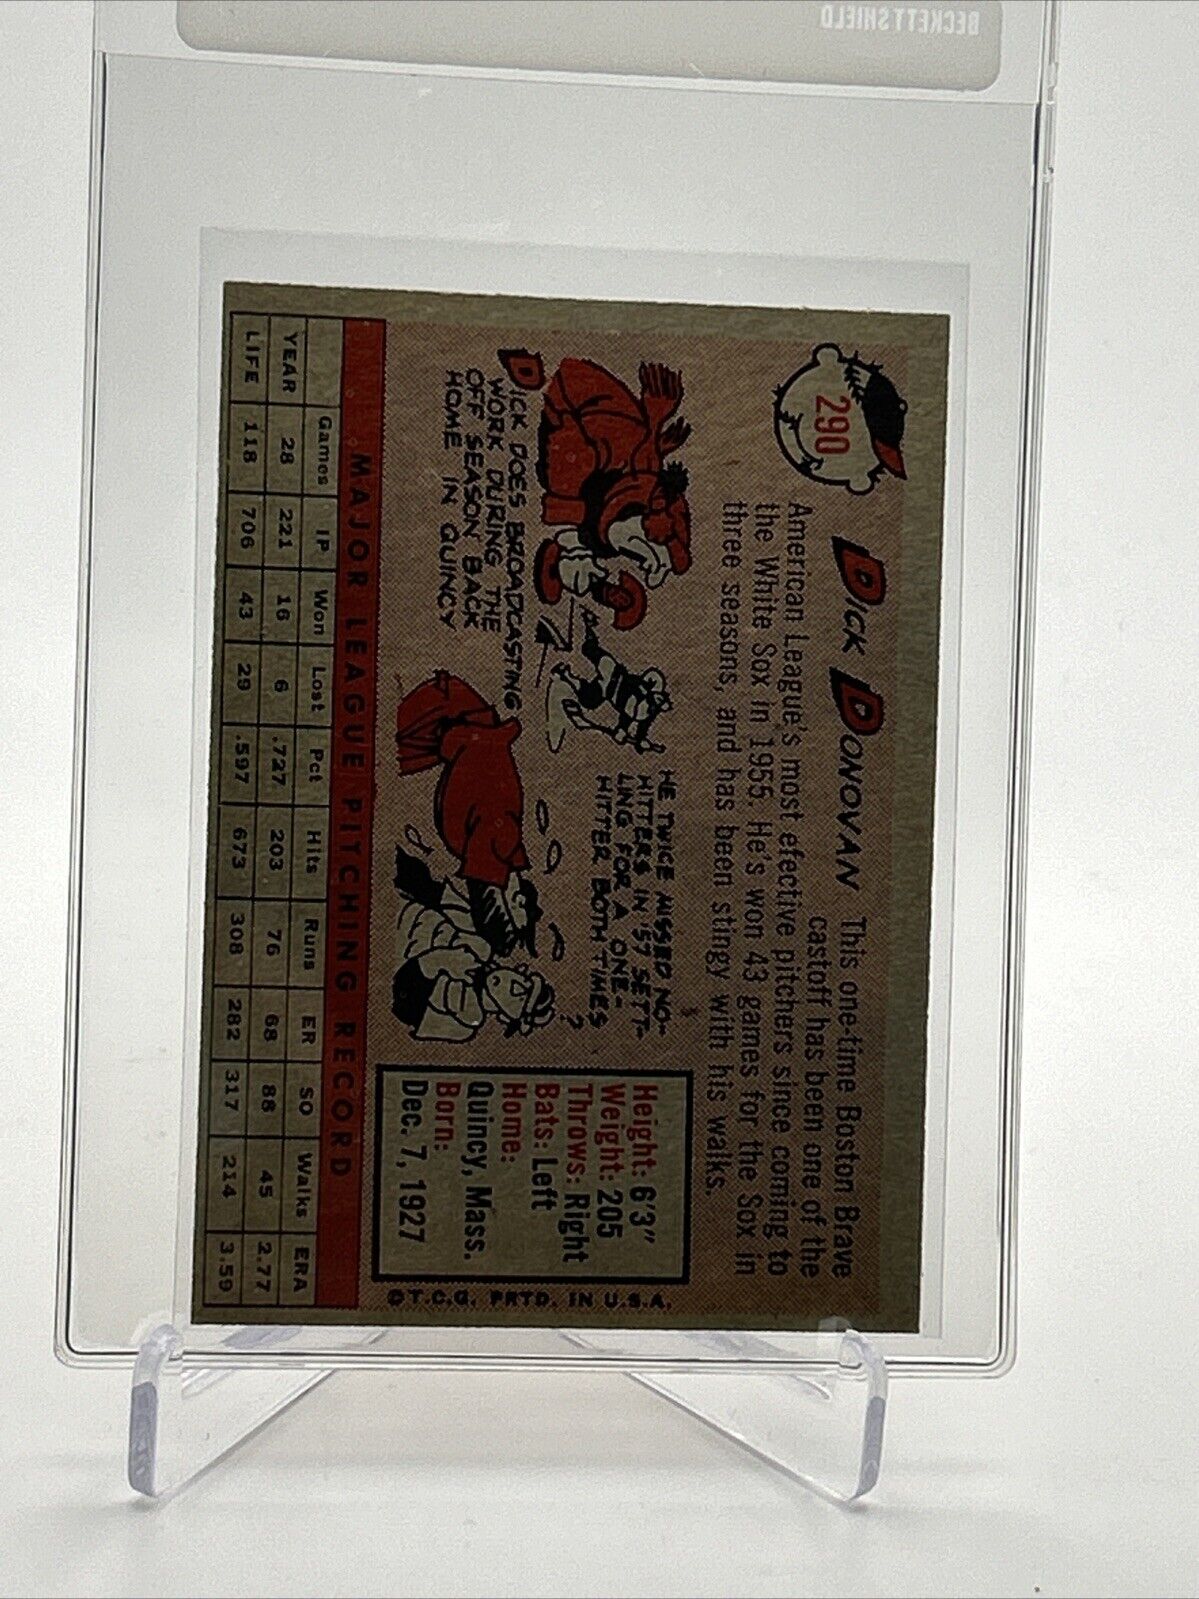 BECKETT SHIELD
290
DICK DONOVAN
This one-time Boston Brave
castoff has been one of the
American League's most efective pitchers since coming to
the White Sox in 1955. He's won 43 games for the Sox in
three seasons, and has been stingy with his walks.
DICK DOES BROADCASTING
WORK DURING THE
OFF SEASON BACK
HOME IN QUINCY
HE TWICE MISSED NO-
HITTERS IN '57 SETT-
LING FOR A ONE-
HITTER BOTH TIMES
?
Height: 6'3"
Weight: 205
Throws: Right
Bats: Left
Home:
Quincy, Mass.
Born:
Dec. 7, 1927
©T.C.G. PRTD. IN U.S.A.
MAJOR LEAGUE PITCHING RECORD
Games IP Won Lost Pct Hits Runs ER SO Walks ERA
YEAR 28 221 16 6 .727 203 76 68 88 45 2.77
LIFE 118 706 43 29 .597 673 308 282 317 214 3.59